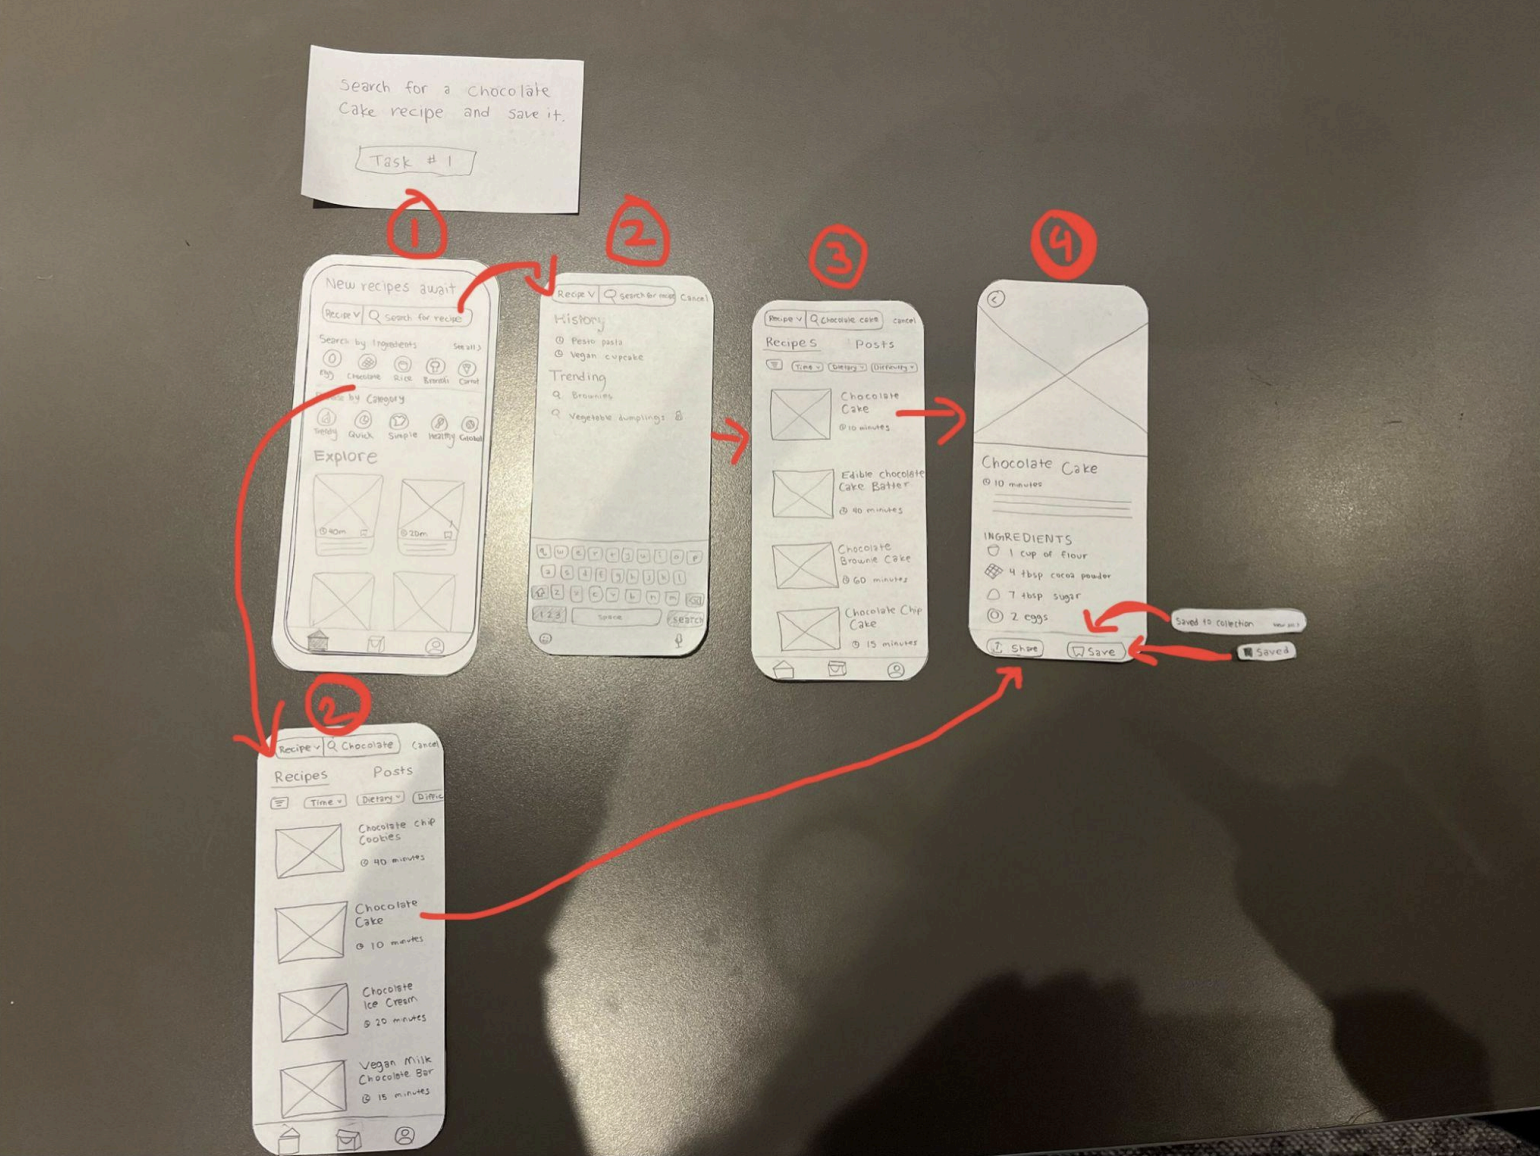 Search for a Chocolate
Cake recipe and save it.
Task # 1
1
New recipes await
Recipe
Search for recipe
Search by Ingredients
See all >
Egg
Chocolate
Rice
Carrot
by Category
Quick
Simple
Healthy
Global
Explore
40m
20m
2
Recipe
Search for
Cancel
History
Pesto pasta
Vegan cupcake
Trending
Brownies
Vegetable dumplings
123
space
search
3
Recipe
Chocolate cake
Cancel
Recipes
Posts
Time
Dietary
Difficulty
Chocolate
Cake
10 minutes
Edible chocolate
Cake Batter
40 minutes
Chocolate
Brownie Cake
60 minutes
Chocolate Chip
Cake
15 minutes
4
Chocolate Cake
10 minutes
INGREDIENTS
1 cup of flour
4 tbsp cocoa powder
7 tbsp sugar
2 eggs
Share
Save
Saved to collection
Saved
2
Recipe
Chocolate
Cancel
Recipes
Posts
Time
Dietary
Diffic
Chocolate chip
Cookies
40 minutes
Chocolate
Cake
10 minutes
Chocolate
Ice Cream
20 minutes
Vegan Milk
Chocolate Bar
15 minutes